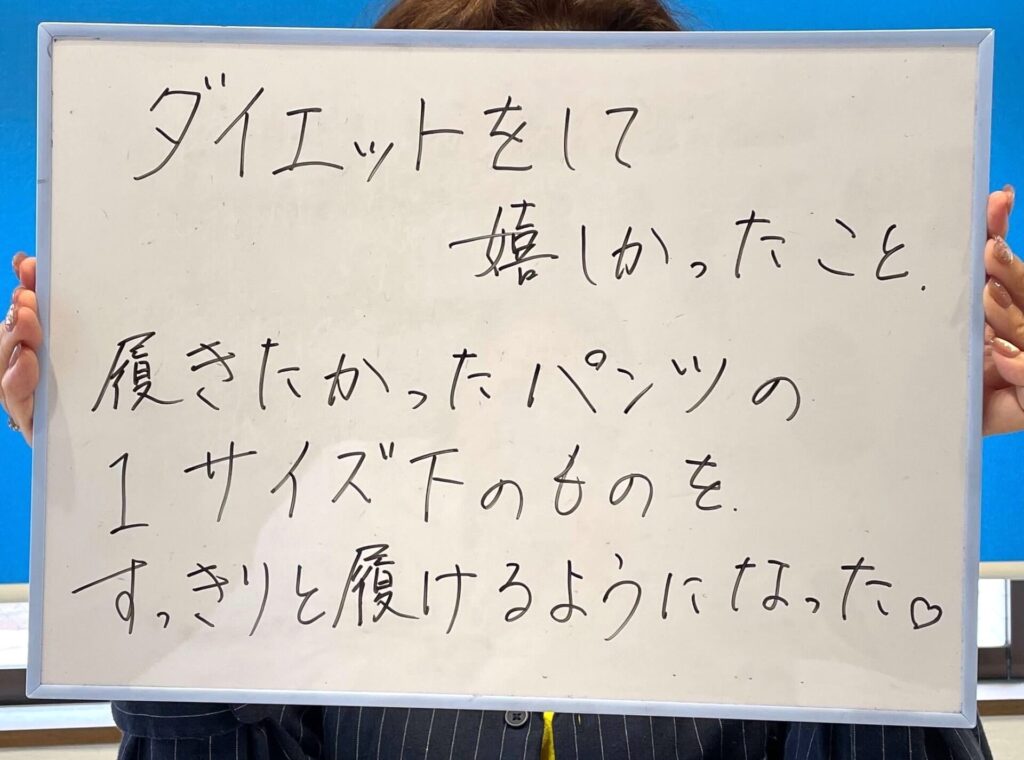 ダイエットをして
嬉しかったこと.
履きたかったパンツの
1サイズ下のものを.
すっきりと履けるようになった♡